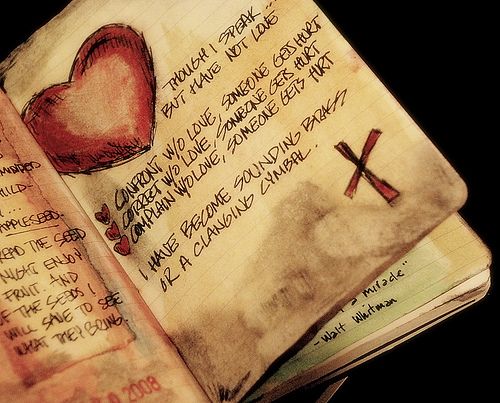 THOUGH I SPEAK...
BUT HAVE NOT LOVE
CONFRONT W/O LOVE, SOMEONE GETS HURT
CORRECT W/O LOVE, SOMEONE GETS HURT
COMPLAIN W/O LOVE, SOMEONE GETS HURT
I HAVE BECOME SOUNDING BRASS
OR A CLANGING CYMBAL.
MINDED
MILD-
APPLESEED-
THE SEED
MIGHT ENJOY
FRUIT. AND
THE SEEDS I
WILL SAVE TO SEE
WHAT THEY BRING.
2008
a miracle"
- Walt Whitman